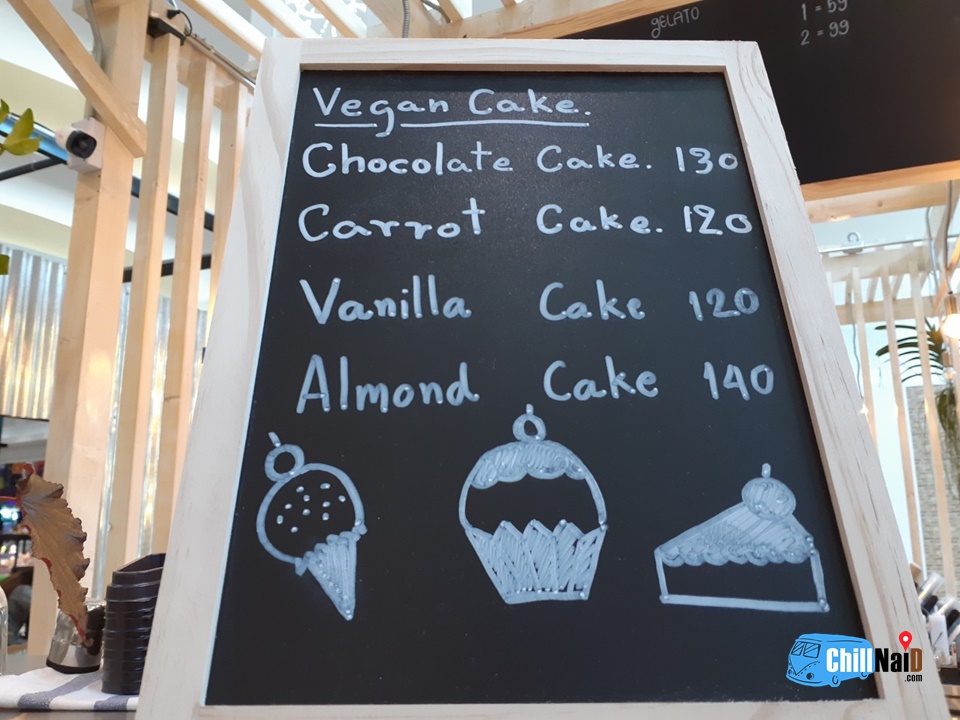 gELATO
1 = 59
2 = 99
Vegan Cake.
Chocolate Cake. 130
Carrot Cake. 120
Vanilla Cake 120
Almond Cake 140
ChillNaiD
.com